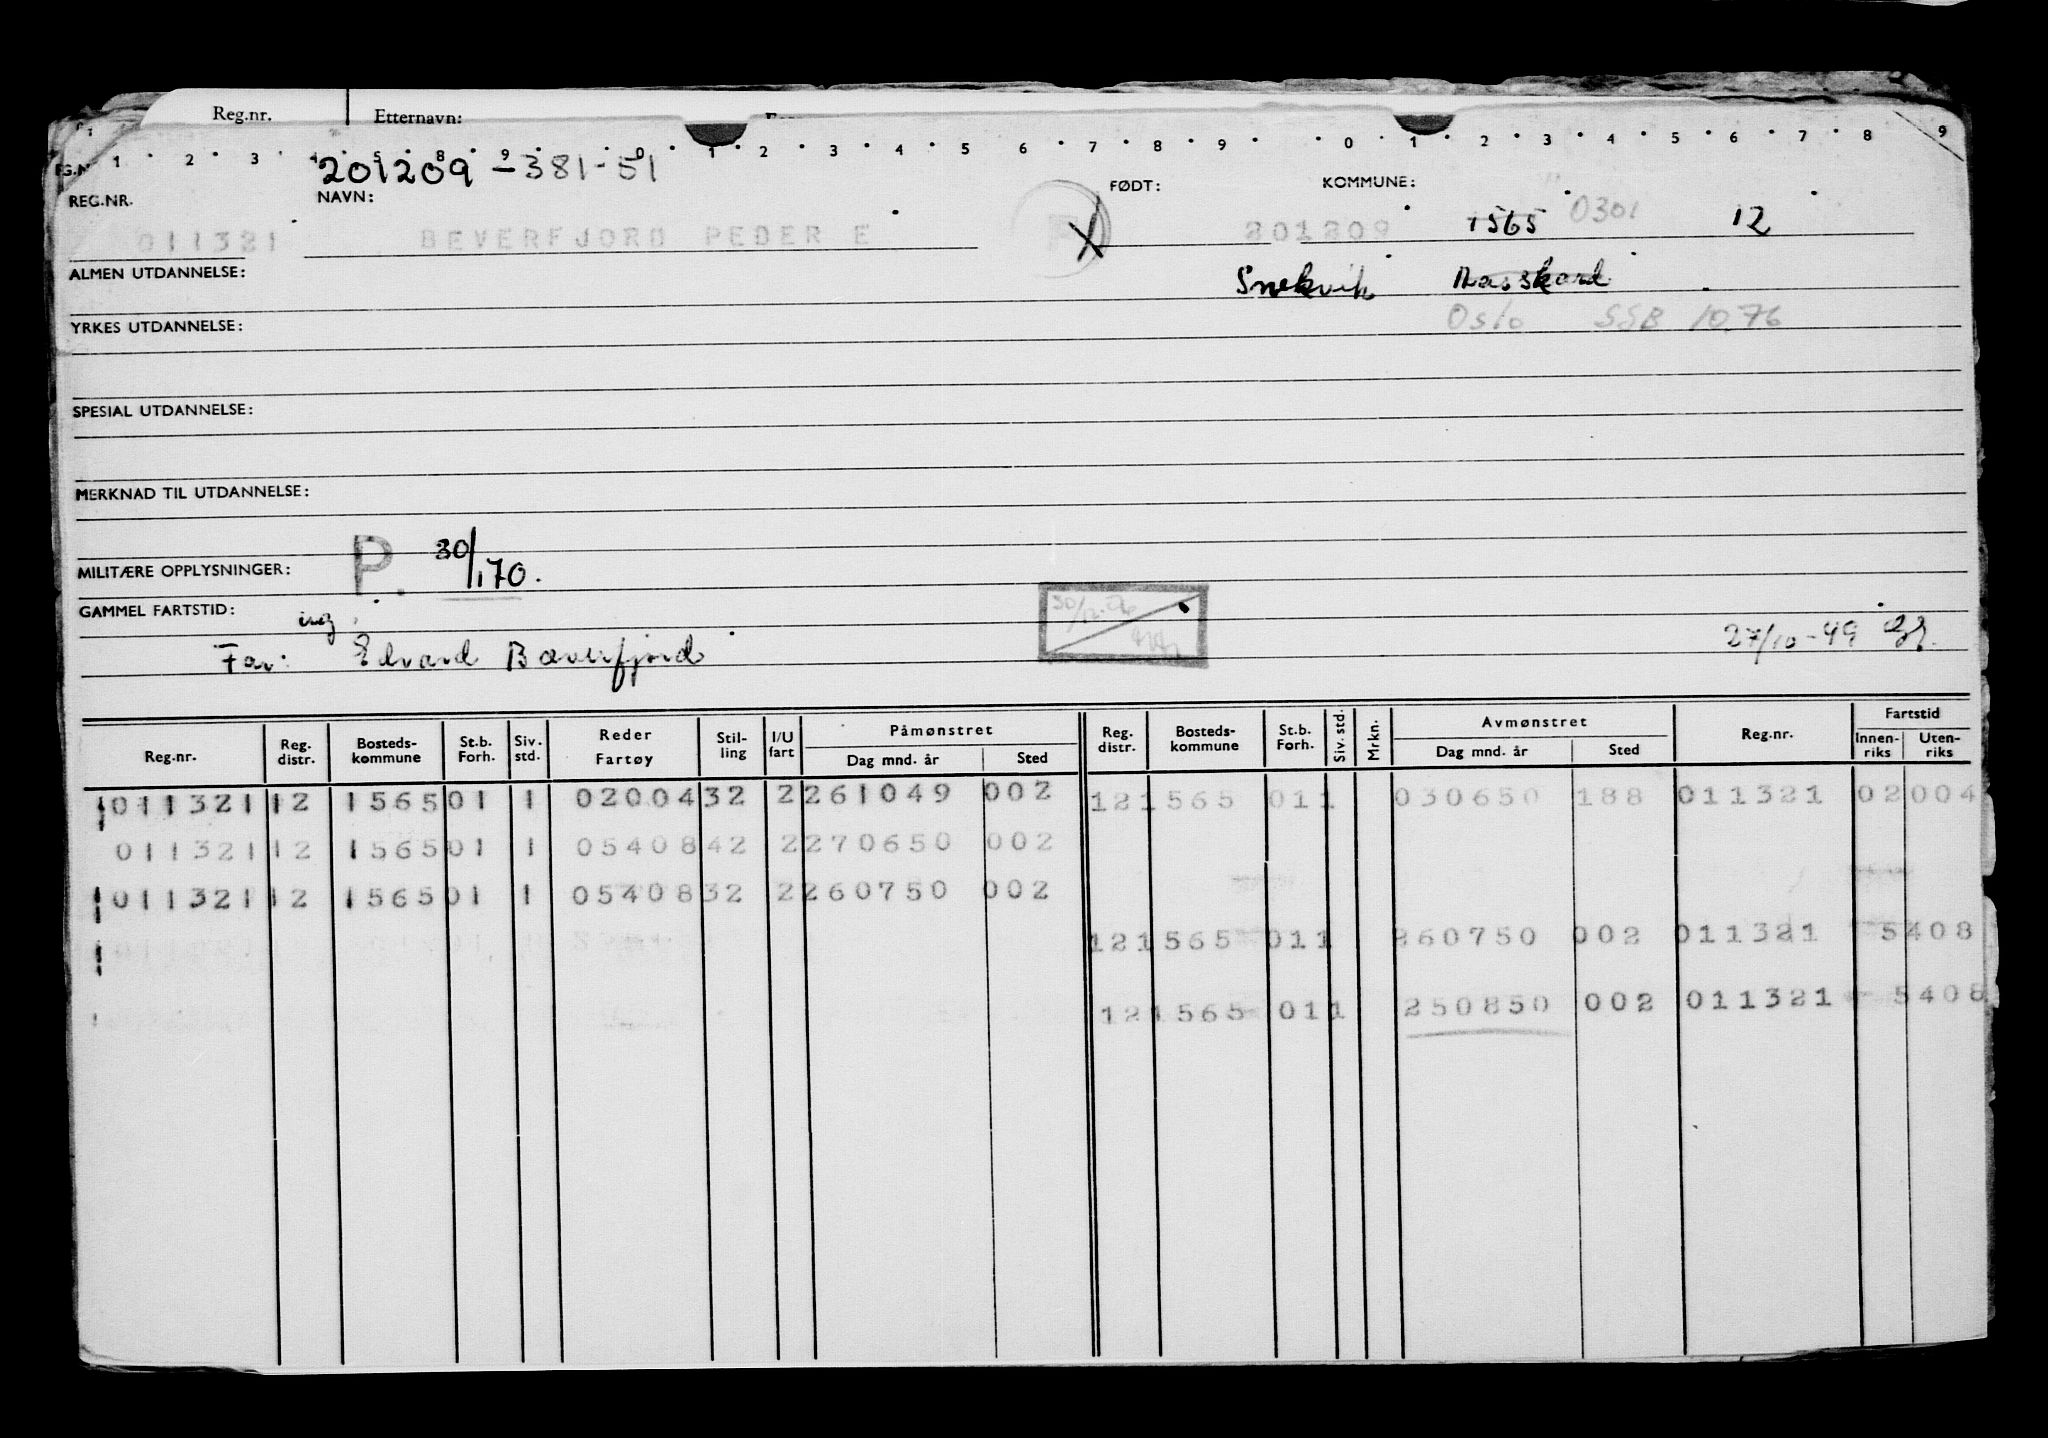 Reg.nr. Etternavn:
1 2 3 4 5 8 9 0 1 2 3 4 5 6 7 8 9 0 1 2 3 4 5 6 7 8 9
201209-381-51
REG.NR. NAVN: FØDT: KOMMUNE:
011321 BEVERFJORD PEDER E 201209 1565 0301 12
ALMEN UTDANNELSE: Snekvik
YRKES UTDANNELSE: Oslo SSB 10.76
SPESIAL UTDANNELSE:
MERKNAD TIL UTDANNELSE:
MILITÆRE OPPLYSNINGER: P. 30/1.70.
GAMMEL FARTSTID:
Far: Edvard Bæverfjord 27/10-49
Reg.nr. Reg. distr. Bosteds-kommune St.b. Forh. Siv. std. Reder Fartøy Stil-ling I/U fart Påmønstret Dag mnd. år Sted Reg. distr. Bosteds-kommune St.b. Forh. Siv. std. Mrkn. Avmønstret Dag mnd. år Sted Reg.nr. Fartstid Innen-riks Uten-riks
011321 12 1565 01 1 02004 32 2 261049 002 12 1565 01 1 030650 188 011321 02004
011321 12 1565 01 1 05408 42 2 270650 002
011321 12 1565 01 1 05408 32 2 260750 002
12 1565 01 1 260750 002 011321 5408
12 1565 01 1 250850 002 011321 5408